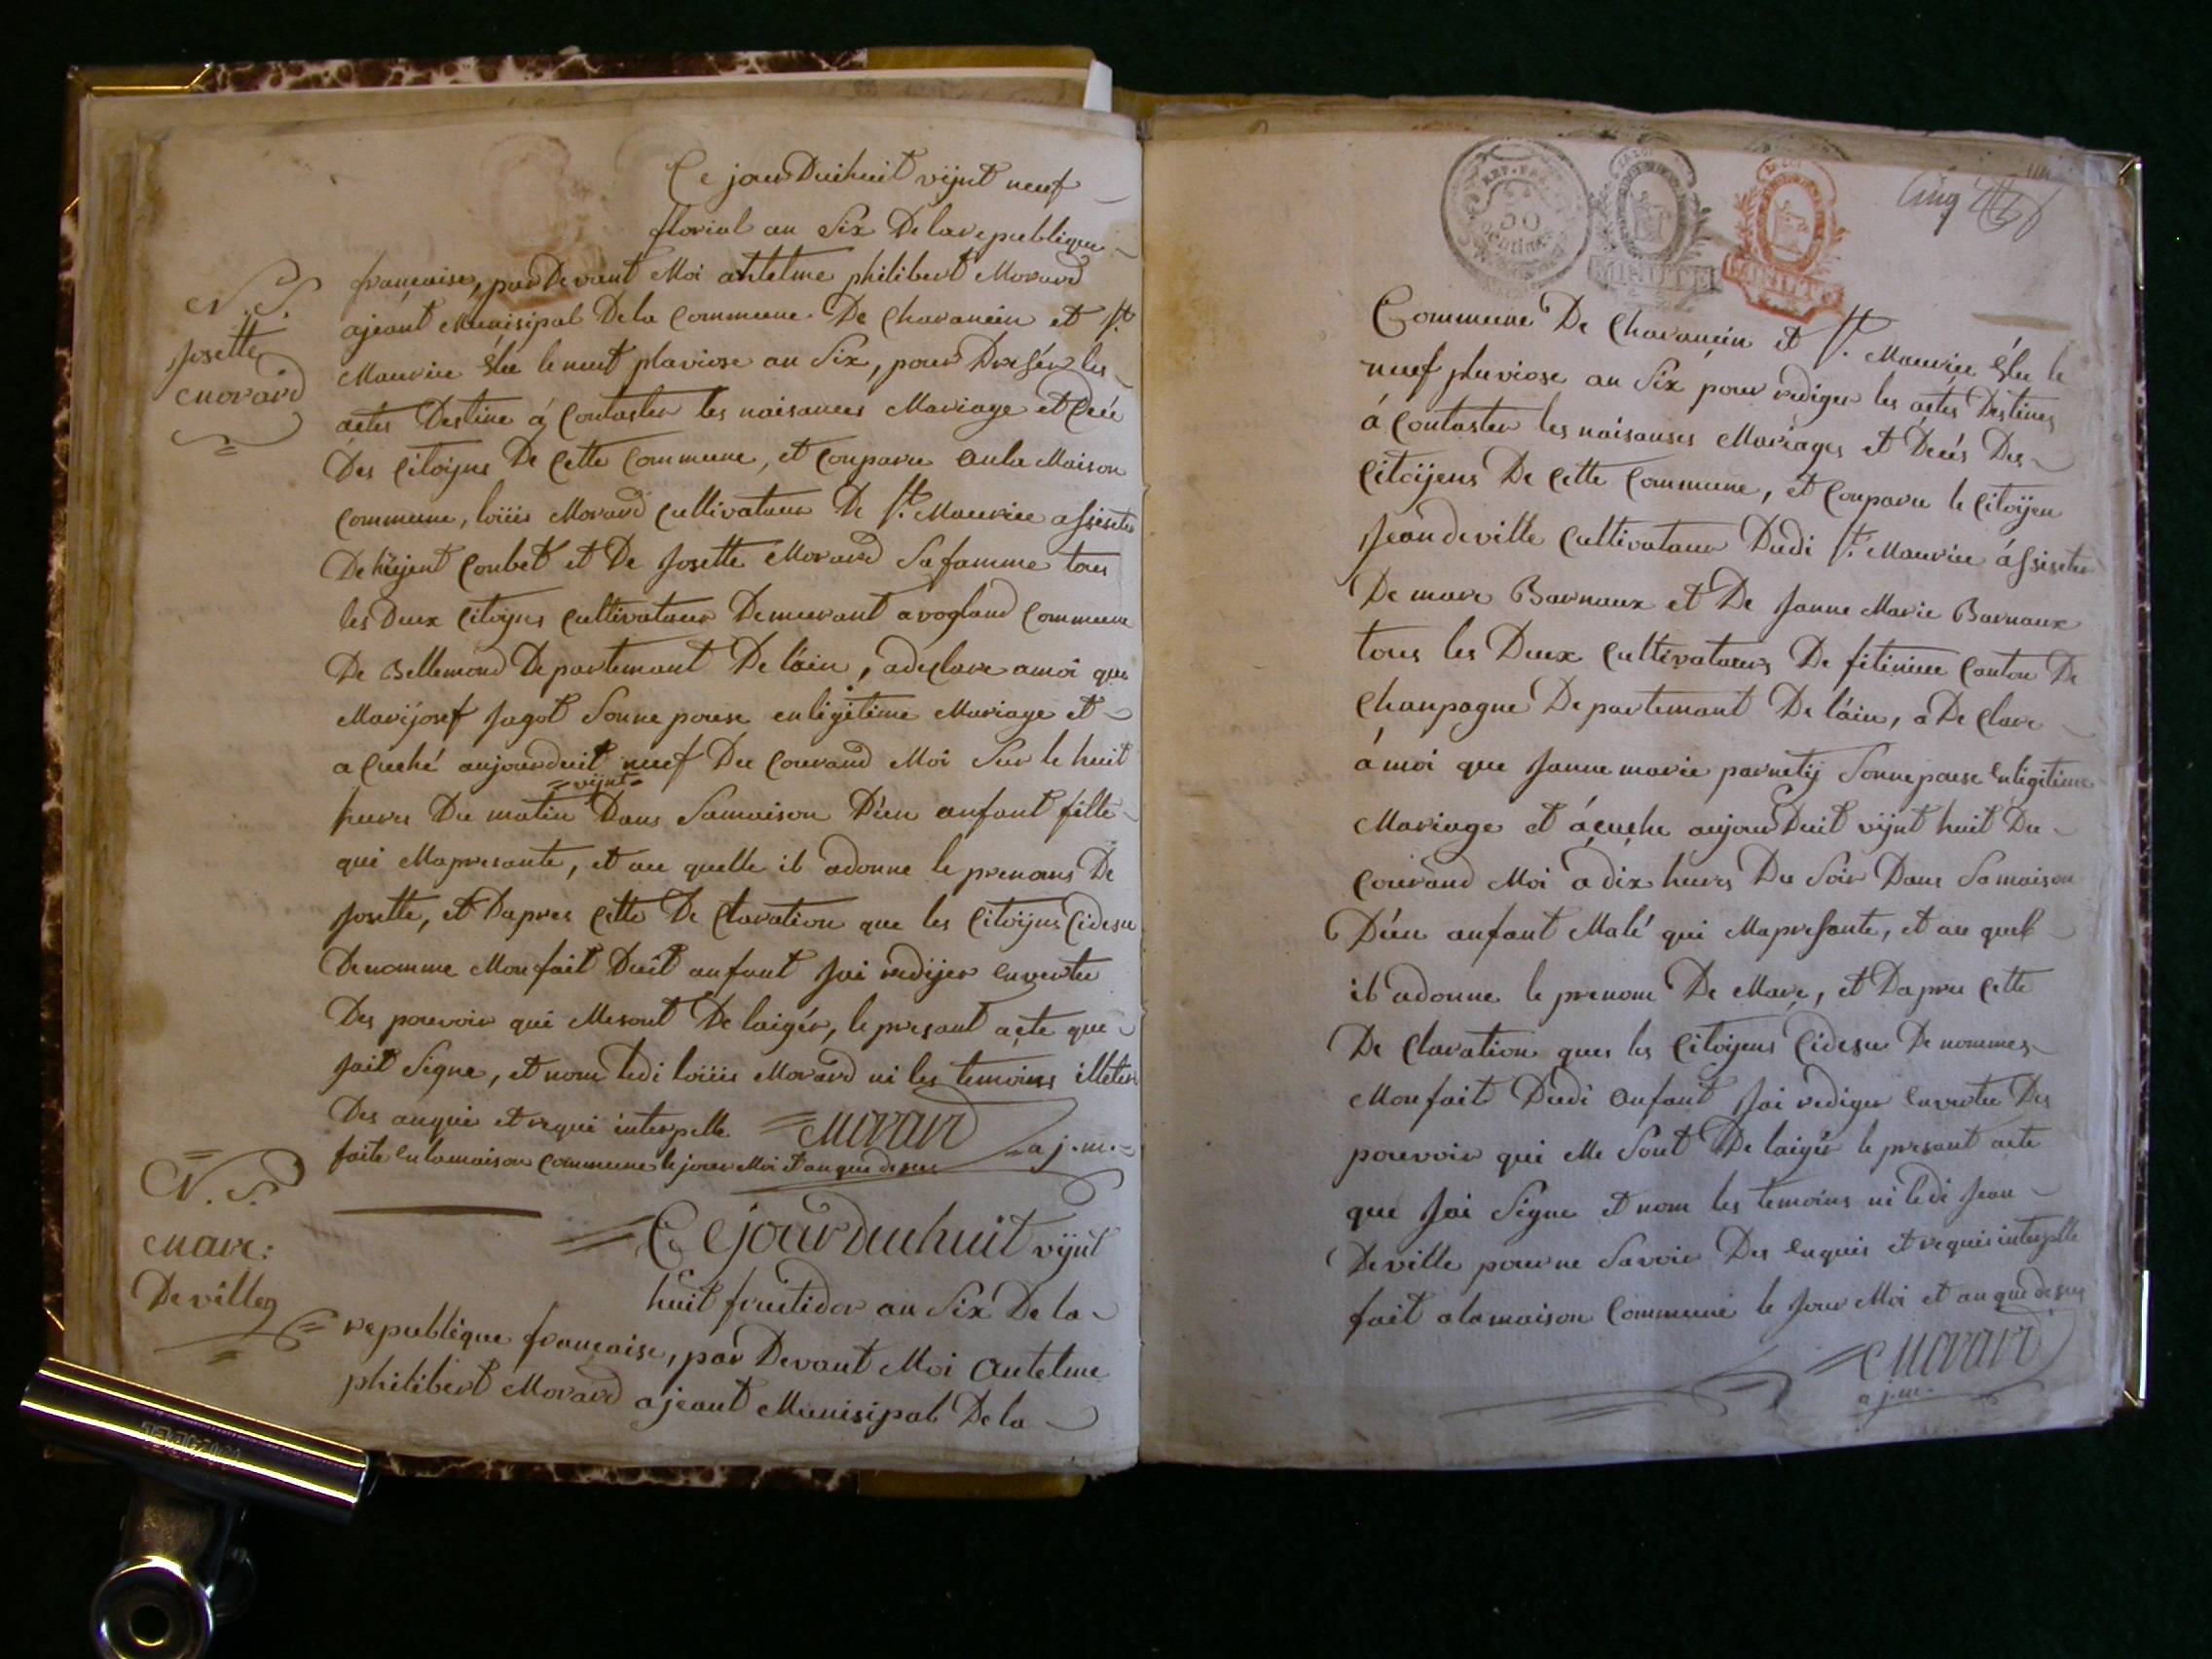 Ce jour Duihuit vijnt neuf
florial an Six De la republique
francaise, par Devant Moi antelme philibert Morard
ajeant Munisipal De la Commune De Chavancin et St.
Maurice Élu le neuf pluviose an Six, pour
actes Destine á Contaster les naisances Mariage et
Des Citoyns De Cette Commune, et Conparu anla Maison
Commune, loüis Morard Cultivataur De St. Maurice assister
De Conbet et De Josette Morard Sa famme tous
les Deux Citoyns Cultivataur Demeurant a vogland Commune
De Bellemond Departemant De láin, a declare a moi que
Marijosef Jagot Sonne pouse en ligitime Mariage et
a Cuché aujourduit neuf Du Courand Moi Sur le huit
=vijnt=
heures Du matin Dans Samaison D'éun anfant fille
qui Mapresante, et au quelle il adonne le prenoms De
Josette, et Dapres Cette De Claration que les Citoyns Cidesu
Denomme Mon fait Duit anfant Jai redijer en vertu
Des pouvoir qui Mesont De laigér, le presant acte que
Jait Signe, et nom ledi loüis Morard ni les temoins illeter
Des anquis et requi interpelle =Morard
faite en lamaison Commune le jour Moi et an que desus a j. m.=
N. S.
Josette
Morard
N. S.
Marc:
Deville
=Ce jour Duihuit vijnt
huit fruitidor an Six De la
republique francaise, par Devant Moi Antelme
philibert Morard ajeant Munisipal De la
REP. FRA.
50
Centimes
LA LOI
LA LOI
Cinq
Commune De Chavancin et St. Maurice Élu le
neuf pluviose an Six pour rediger les actes Destines
á Contaster les naisanses Mariages et Decés Des
Citoÿens De Cette Commune, et Conparu le Citoÿen
Jean deville Cultivataur Dudi St. Maurice ássister
De marc Barnaux et De Janne Marie Barnaux
tous les Deux Cultivataurs De fitinieu Canton De
Chanpagne Departemant De láin, a De Clare
á moi que Janne marie parnetij Sonne pouse En ligitime
Mariage et ácuche aujourDuit vijnt huit Du
Courand Moi a dix heures Du Soir Dans Samaison
D'éun anfant Malé qui Mapresante, et au quel
il adonne le prenom De Marc, et Dapres Cette
De Claration ques les Citoÿens Cidesu De nommes
Mon fait Dudi anfant Jai rediger en vertu Des
pouvoir qui Me Sont De laigér le presant acte
que Jai Signe et nom les temoins ni ledi Jean
Deville pour ne Savoir Des Enquis et requis interpelle
fait a lamaison Commune le Jour Moi et an que desus
=Morard
a j. m.